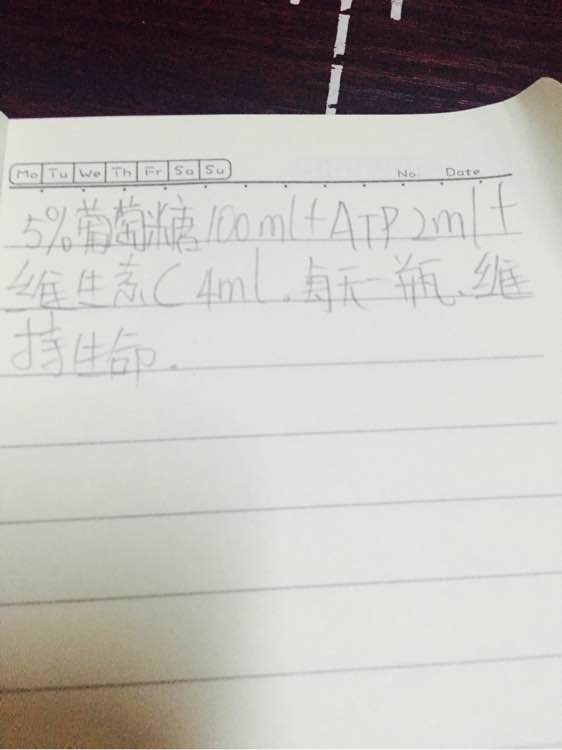 Mo Tu We Th Fr Sa Su No. Date
5%葡萄糖100ml+ATP2ml+
维生素C4ml.每天一瓶、维
持生命.